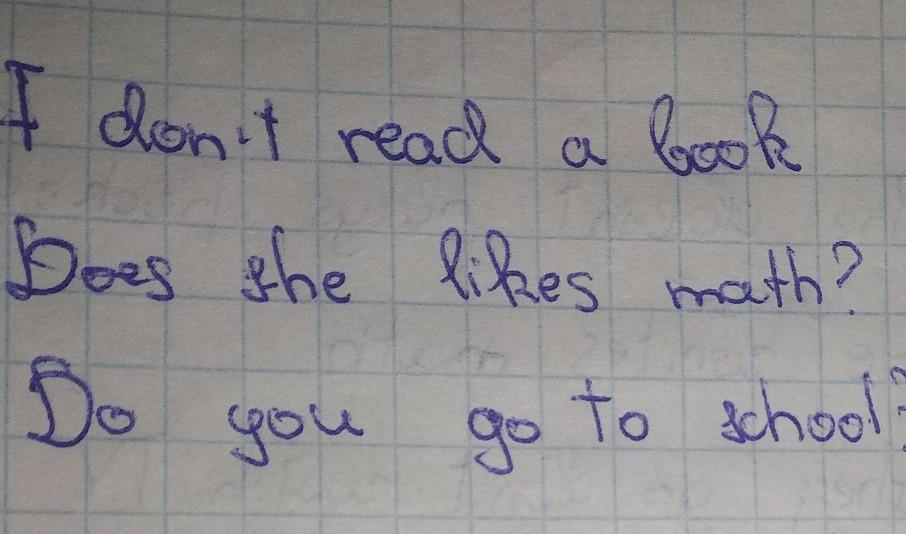 I don't read a book
Does she likes math?
Do you go to school?